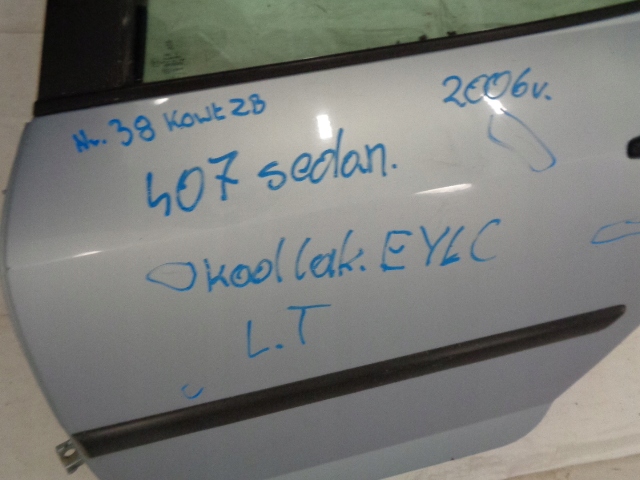 Nr. 38 Kowt 28
2006v.
407 sedan.
kod lak. EYLC
L.T